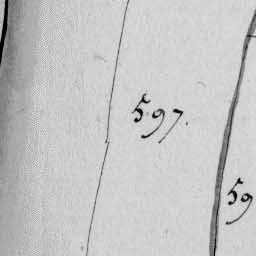 597.
59